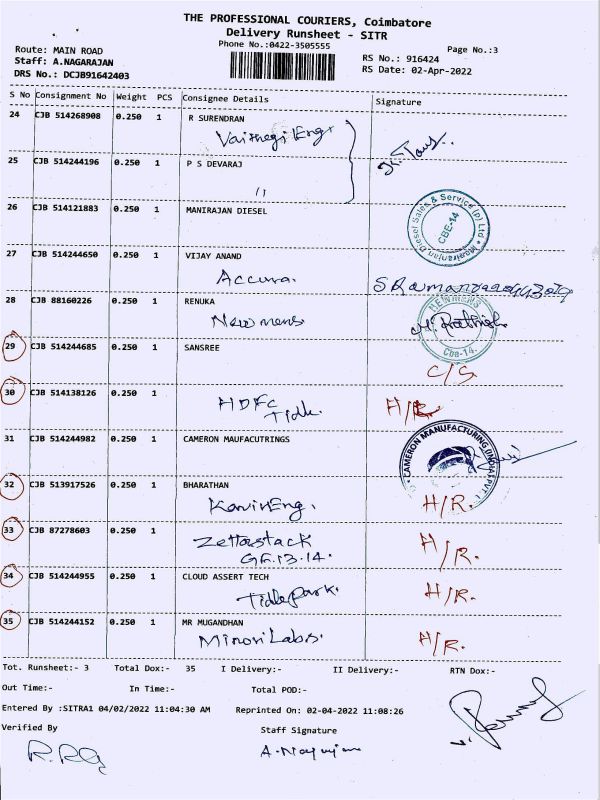 THE PROFESSIONAL COURIERS, Coimbatore
Delivery Runsheet - SITR
Phone No.:0422-3505555
Page No.:3
Route: MAIN ROAD
Staff: A.NAGARAJAN
DRS No.: DCJB91642403
RS No.: 916424
RS Date: 02-Apr-2022
S No Consignment No Weight PCS Consignee Details Signature
24 CJB 514268908 0.250 1 R SURENDRAN
25 CJB 514244196 0.250 1 P S DEVARAJ
11
26 CJB 514121883 0.250 1 MANIRAJAN DIESEL
Maniranjan Diesel Sales & Service (P) Ltd
CBE-14
27 CJB 514244650 0.250 1 VIJAY ANAND
Accura.
28 CJB 88160226 0.250 1 RENUKA
Newmens
NEWMENS
Cbe-14.
29 CJB 514244685 0.250 1 SANSREE
C/S
30 CJB 514138126 0.250 1
HDFC
Tidle.
H/R
31 CJB 514244982 0.250 1 CAMERON MAUFACUTRINGS
CAMERON MANUFACTURING (INDIA) PVT
32 CJB 513917526 0.250 1 BHARATHAN
H/R.
33 CJB 87278603 0.250 1
Zettastack
GF.13.14.
H/R.
34 CJB 514244955 0.250 1 CLOUD ASSERT TECH
Tidlepark.
H/R.
35 CJB 514244152 0.250 1 MR MUGANDHAN
Minori Labs.
H/R.
Tot. Runsheet:- 3 Total Dox:- 35 I Delivery:- II Delivery:- RTN Dox:-
Out Time:- In Time:- Total POD:-
Entered By :SITRA1 04/02/2022 11:04:30 AM Reprinted On: 02-04-2022 11:08:26
Verified By Staff Signature